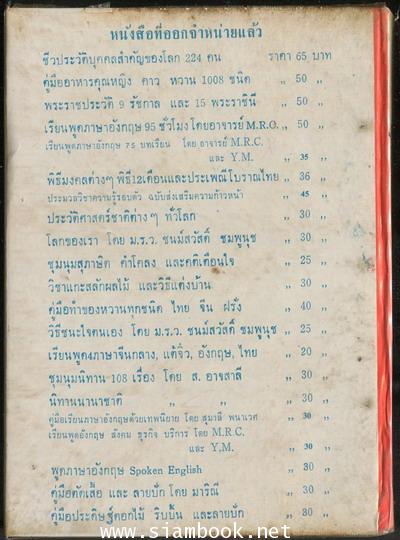 หนังสือที่ออกจำหน่ายแล้ว
ชีวประวัติบุคคลสำคัญของโลก 224 คน ราคา 65 บาท
คู่มืออาหารคุณหญิง คาว หวาน 1008 ชนิด ,, 50 ,,
พระราชประวัติ 9 รัชกาล และ 15 พระราชินี ,, 50 ,,
เรียนพูดภาษาอังกฤษ 95 ชั่วโมง โดยอาจารย์ M.R.C. ,, 50 ,,
เรียนพูดภาษาอังกฤษ 75 บทเรียน โดย อาจารย์ M.R.C.
และ Y.M. ,, 35 ,,
พิธีมงคลต่างๆ พิธี12เดือนและประเพณีโบราณไทย ,, 36 ,,
ประมวลวิชาความรู้รอบตัว ฉบับส่งเสริมความก้าวหน้า ,, 45 ,,
ประวัติศาสตร์ชาติต่าง ๆ ทั่วโลก ,, 30 ,,
โลกของเรา โดย ม.ร.ว. ชนม์สวัสดิ์ ชมพูนุช ,, 30 ,,
ชุมนุมสุภาษิต คำโคลง และคติเตือนใจ ,, 25 ,,
วิชาแกะสลักผลไม้ และวิธีแต่งบ้าน ,, 30 ,,
คู่มือทำของหวานทุกชนิด ไทย จีน ฝรั่ง ,, 40 ,,
วิธีชนะใจคนเอง โดย ม.ร.ว. ชนม์สวัสดิ์ ชมพูนุช ,, 25 ,,
เรียนพูด4ภาษาจีนกลาง, แต้จิ๋ว, อังกฤษ, ไทย ,, 20 ,,
ชุมนุมนิทาน 108 เรื่อง โดย ส. อาจสาลี ,, 30 ,,
นิทานนานาชาติ ,, ,, ,, 30 ,,
คู่มือเรียนภาษาอังกฤษด้วยเทพนิยาย โดย สุมาลี พนาเวศ ,, 30 ,,
เรียนพูดอังกฤษ สังคม ธุรกิจ บริการ โดย M.R.C.
และ Y.M. ,, 30 ,,
พูดภาษาอังกฤษ Spoken English ,, 30 ,,
คู่มือตัดเสื้อ และ ลายปัก โดย มาริณี ,, 30 ,,
คู่มือประดิษฐ์ดอกไม้ ริบบิ้น และลายปัก ,, 30 ,,
www.siambook.net